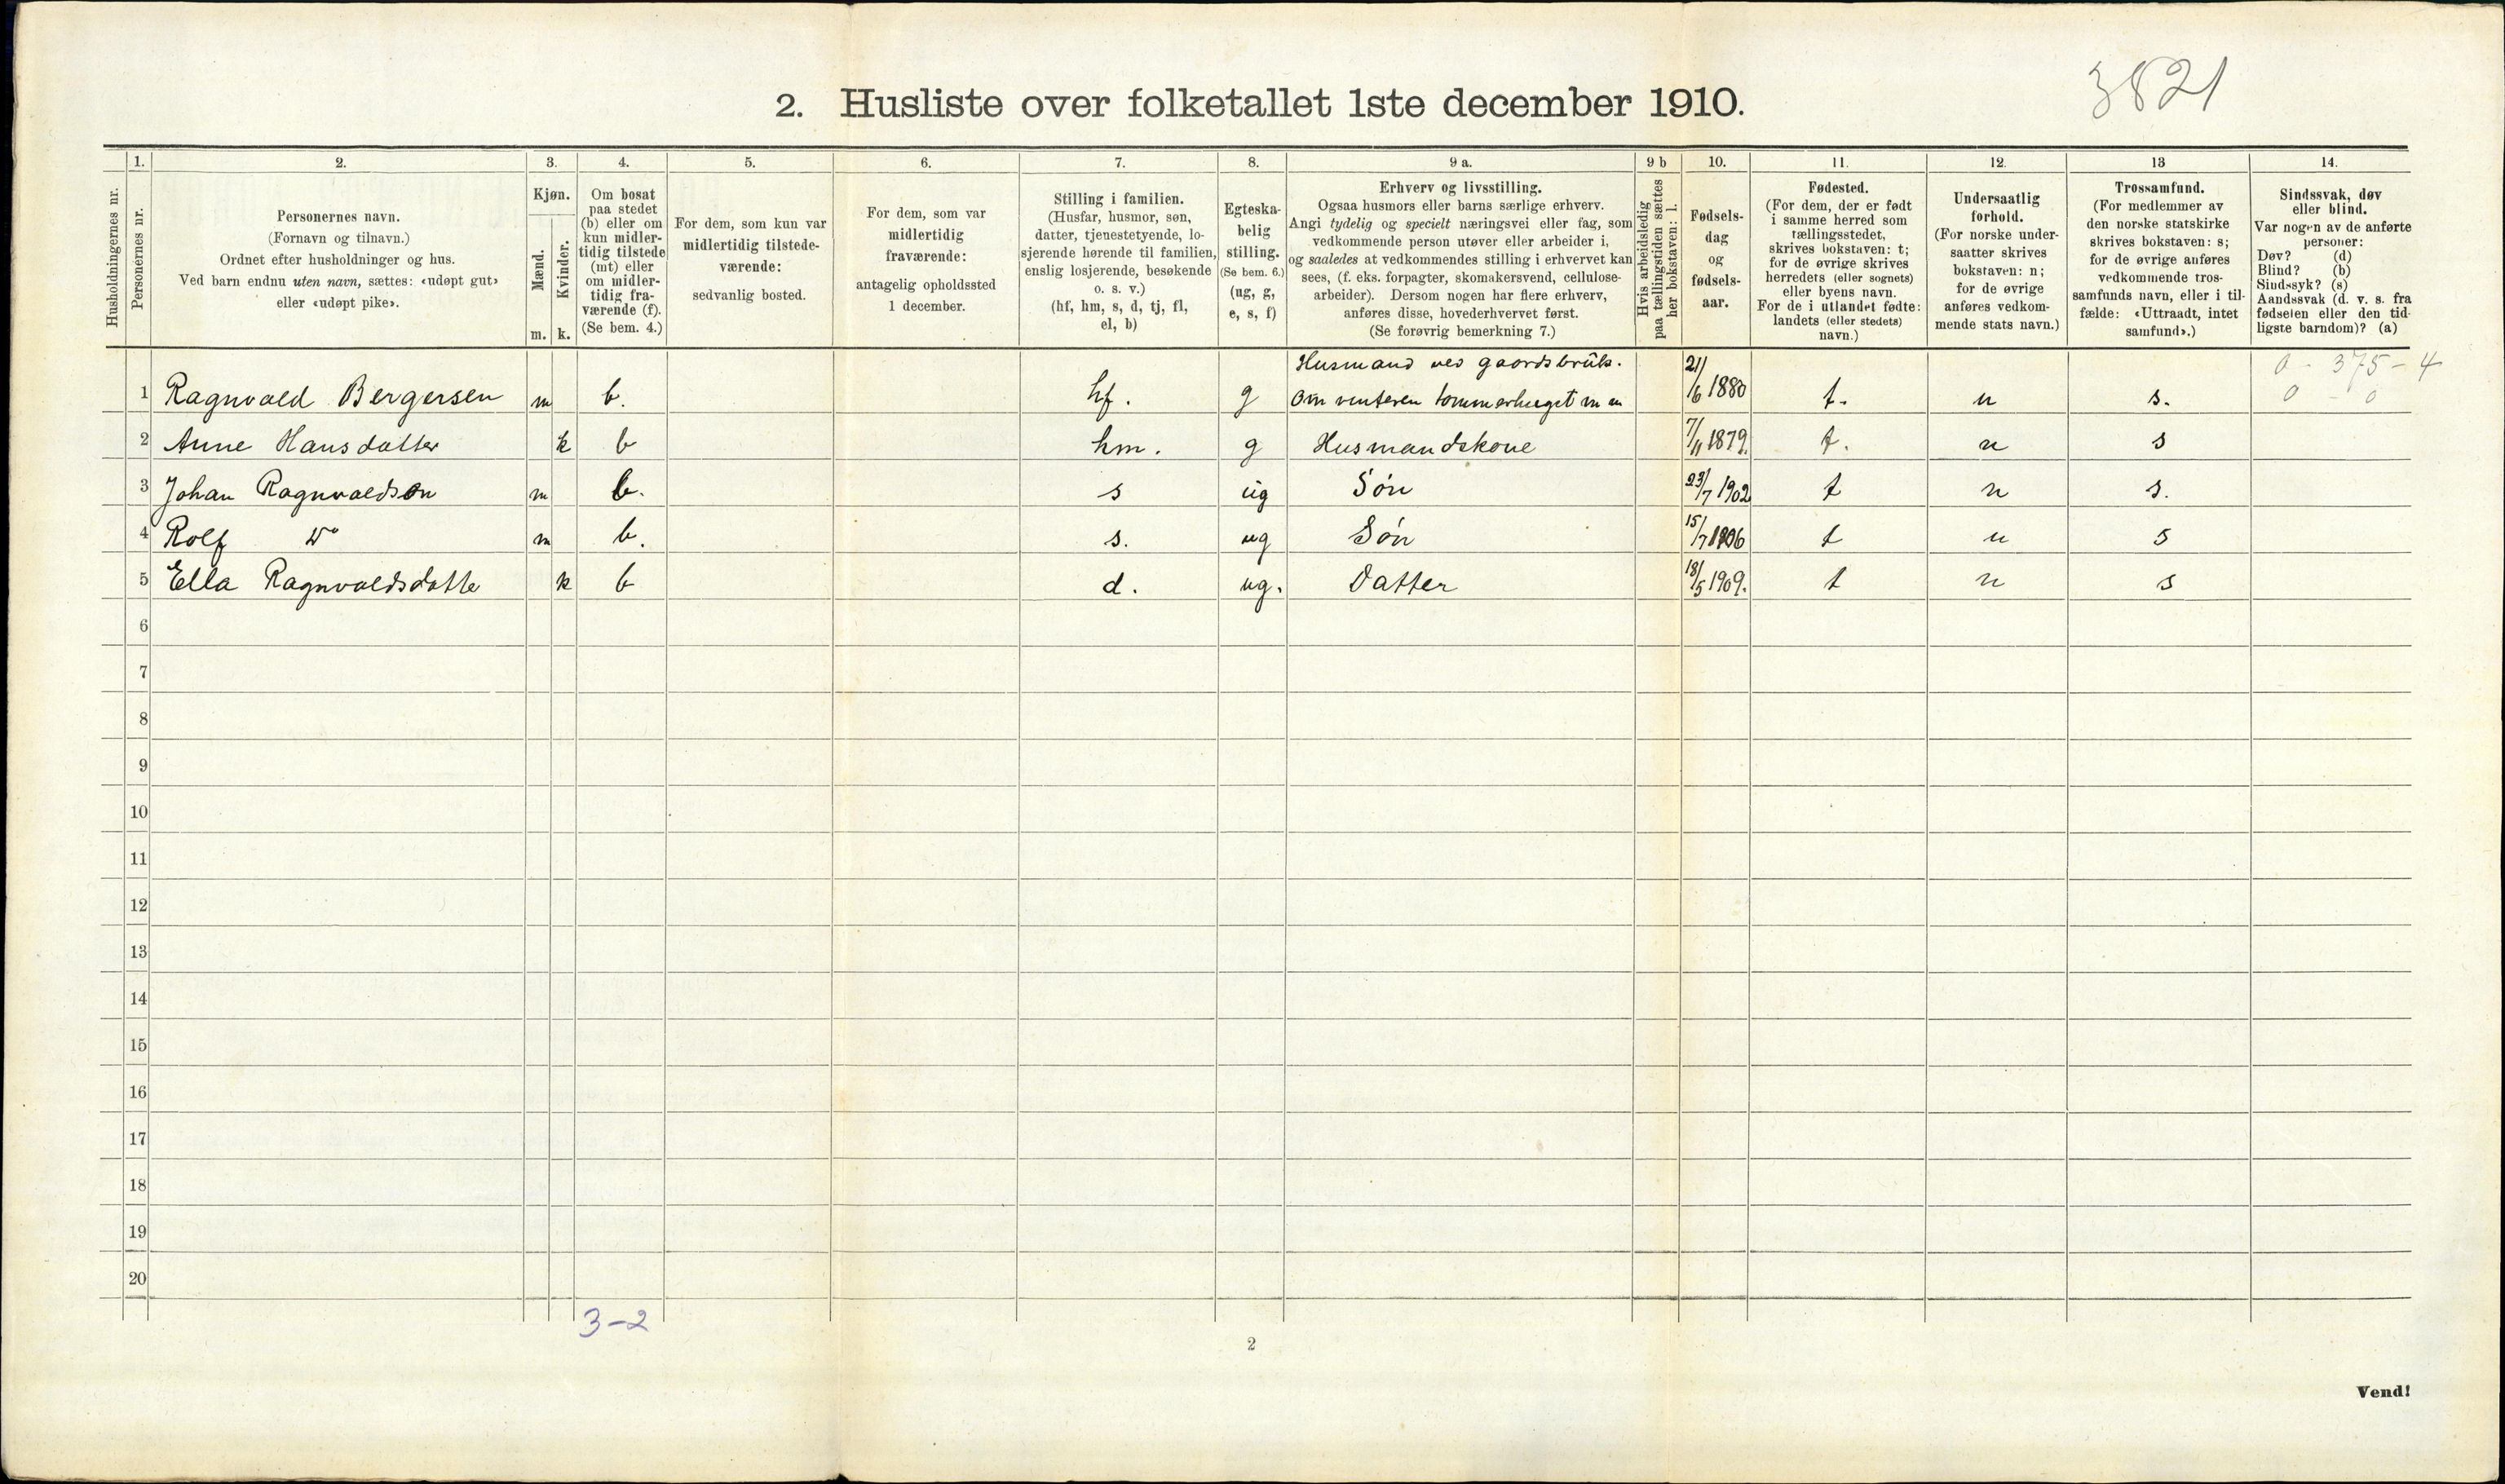 3821
2. Husliste over folketallet 1ste december 1910.
Husholdningernes nr.
1.
Personernes nr.
2.
Personernes navn.
(Fornavn og tilnavn.)
Ordnet efter husholdninger og hus.
Ved barn endnu uten navn, sættes: «udøpt gut»
eller «udøpt pike».
3.
Kjøn.
Mænd.
Kvinder.
m. k.
4.
Om bosat
paa stedet
(b) eller om
kun midler-
tidig tilstede
(mt) eller
om midler-
tidig fra-
værende (f).
(Se bem. 4.)
5.
For dem, som kun var
midlertidig tilstede-
værende:
sedvanlig bosted.
6.
For dem, som var
midlertidig
fraværende:
antagelig opholdssted
1 december.
7.
Stilling i familien.
(Husfar, husmor, søn,
datter, tjenestetyende, lo-
sjerende hørende til familien,
enslig losjerende, besøkende
o. s. v.)
(hf, hm, s, d, tj, fl,
el, b)
8.
Egteska-
belig
stilling.
(Se bem. 6.)
(ug, g,
e, s, f)
9 a.
Erhverv og livsstilling.
Ogsaa husmors eller barns særlige erhverv.
Angi tydelig og specielt næringsvei eller fag, som
vedkommende person utøver eller arbeider i,
og saaledes at vedkommendes stilling i erhvervet kan
sees, (f. eks. forpagter, skomakersvend, cellulose-
arbeider). Dersom nogen har flere erhverv,
anføres disse, hovederhvervet først.
(Se forøvrig bemerkning 7.)
9 b
Hvis arbeidsledig
paa tællingstiden sættes
her bokstaven: l.
10.
Fødsels-
dag
og
fødsels-
aar.
11.
Fødested.
(For dem, der er født
i samme herred som
tællingsstedet,
skrives bokstaven: t;
for de øvrige skrives
herredets (eller sognets)
eller byens navn.
For de i utlandet fødte:
landets (eller stedets)
navn.)
12.
Undersaatlig
forhold.
(For norske under-
saatter skrives
bokstaven: n;
for de øvrige
anføres vedkom-
mende stats navn.)
13
Trossamfund.
(For medlemmer av
den norske statskirke
skrives bokstaven: s;
for de øvrige anføres
vedkommende tros-
samfunds navn, eller i til-
fælde: «Uttraadt, intet
samfund».)
14.
Sindssvak, døv
eller blind.
Var nogen av de anførte
personer:
Døv? (d)
Blind? (b)
Sindssyk? (s)
Aandssvak (d. v. s. fra
fødselen eller den tid-
ligste barndom)? (a)
Husmand ved gaardsbruk. 0 - 375 - 4
1 Ragnvald Bergersen m b. hf. g Om vinteren tømmerhuget m m 21/6 1880 t. n s. 0 - 0
2 Anne Hansdatter k b hm. g Husmandskone 7/11 1879. t. n s
3 Johan Ragnvaldson m b. s ug Søn 23/7 1902 t n s.
4 Rolf Do m b. s. ug Søn 15/7 1906 t n s
5 Ella Ragnvaldsdatte k b d. ug. Datter 18/5 1909. t n s
6
7
8
9
10
11
12
13
14
15
16
17
18
19
20
3-2
2
Vend!